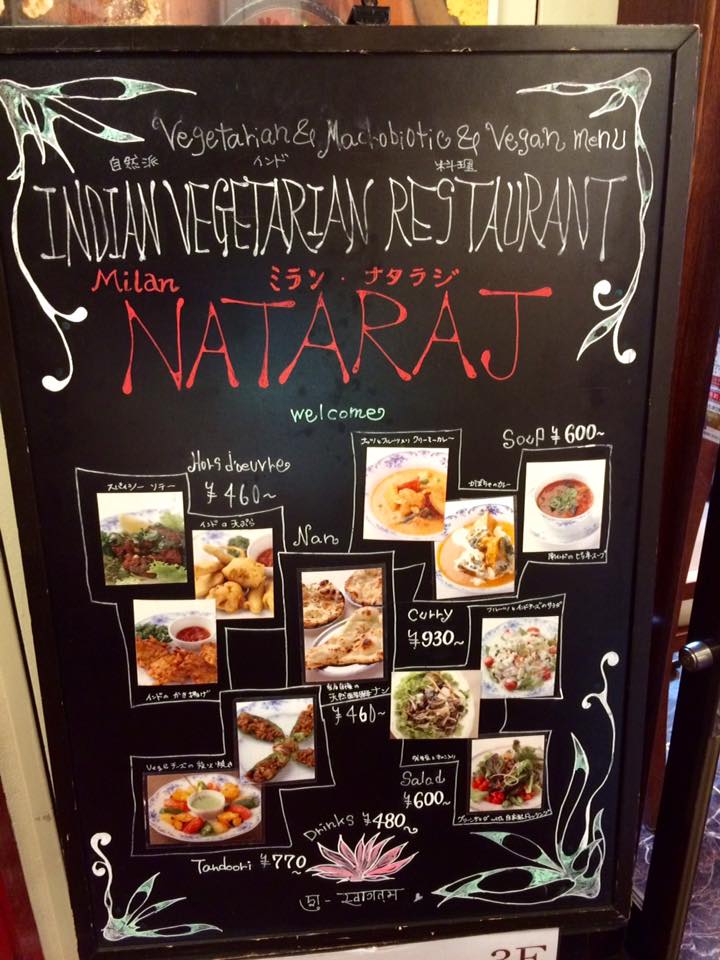 Vegetarian & Macrobiotic & Vegan menu
自然派 インド 料理
INDIAN VEGETARIAN RESTAURANT
Milan ミラン・ナタラジ
NATARAJ
welcome
Hors d'oeuvre
¥460~
スパイシー ソテー
インドの天ぷら
インドのかき揚げ
Nan
天然酵母ナン
¥460~
ナッツとフルーツ入りクリーミーカレー
かぼちゃのカレー
Curry
¥930~
Soup ¥600~
フルーツとインドチーズのサラダ
Salad
¥600~
グリーンサラダ with 自家製ドレッシング
Vegeチーズの
Tandoori ¥770~
Drinks ¥480~
स्वागतम
3F